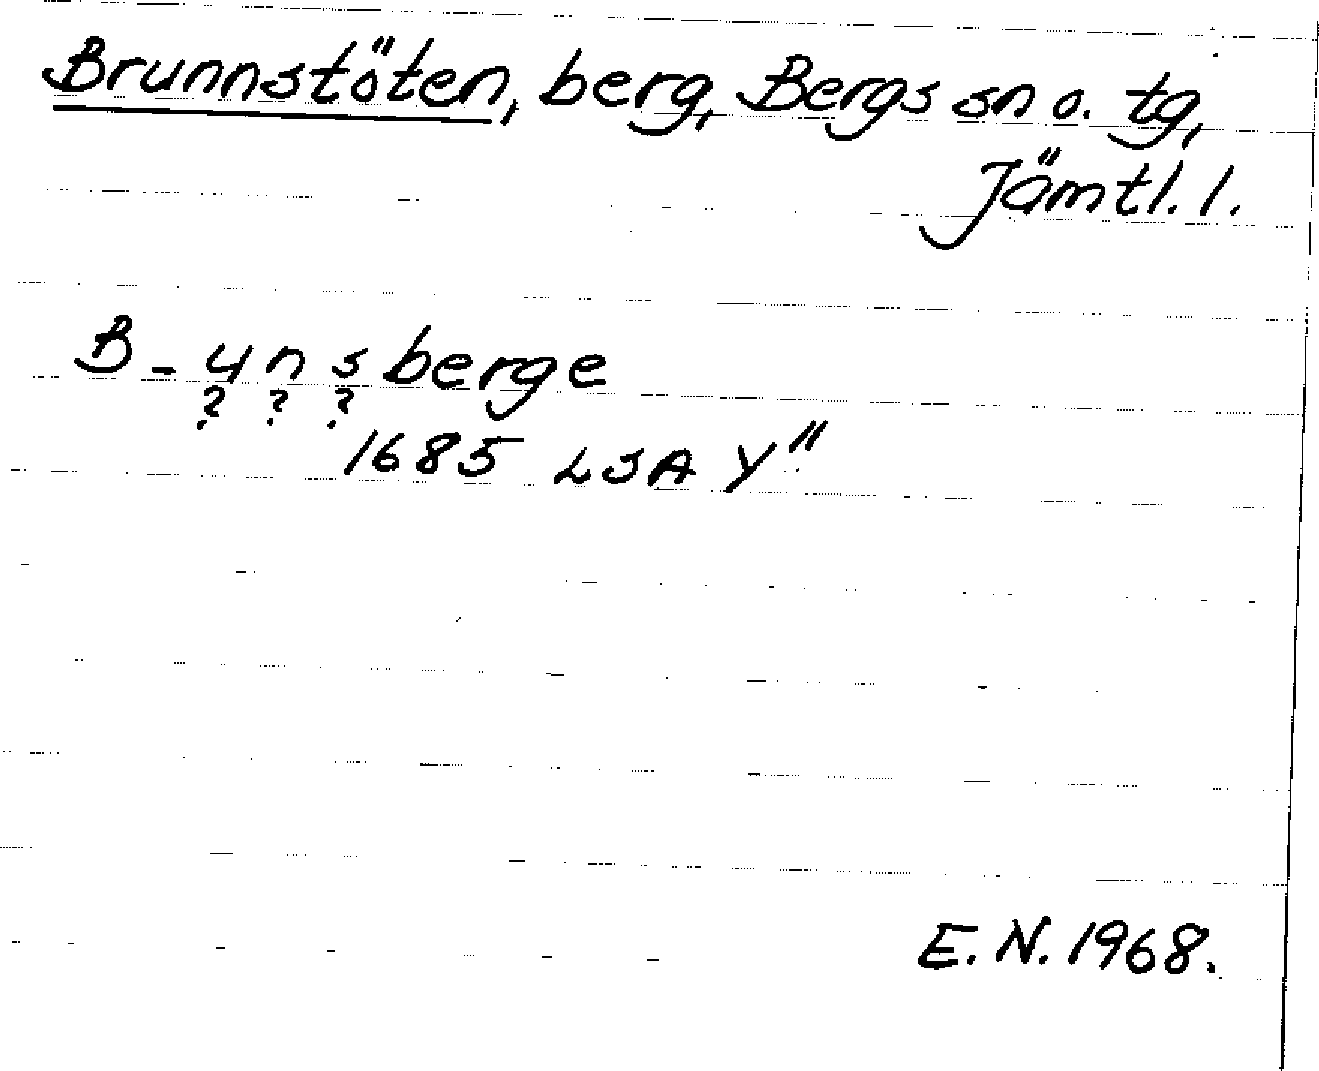 Brunnstöten, berg, Bergs sn o. tg,
Jämtl. l.
B-unsberge
? ? ?
1685 LSA Y"
E.N. 1968.